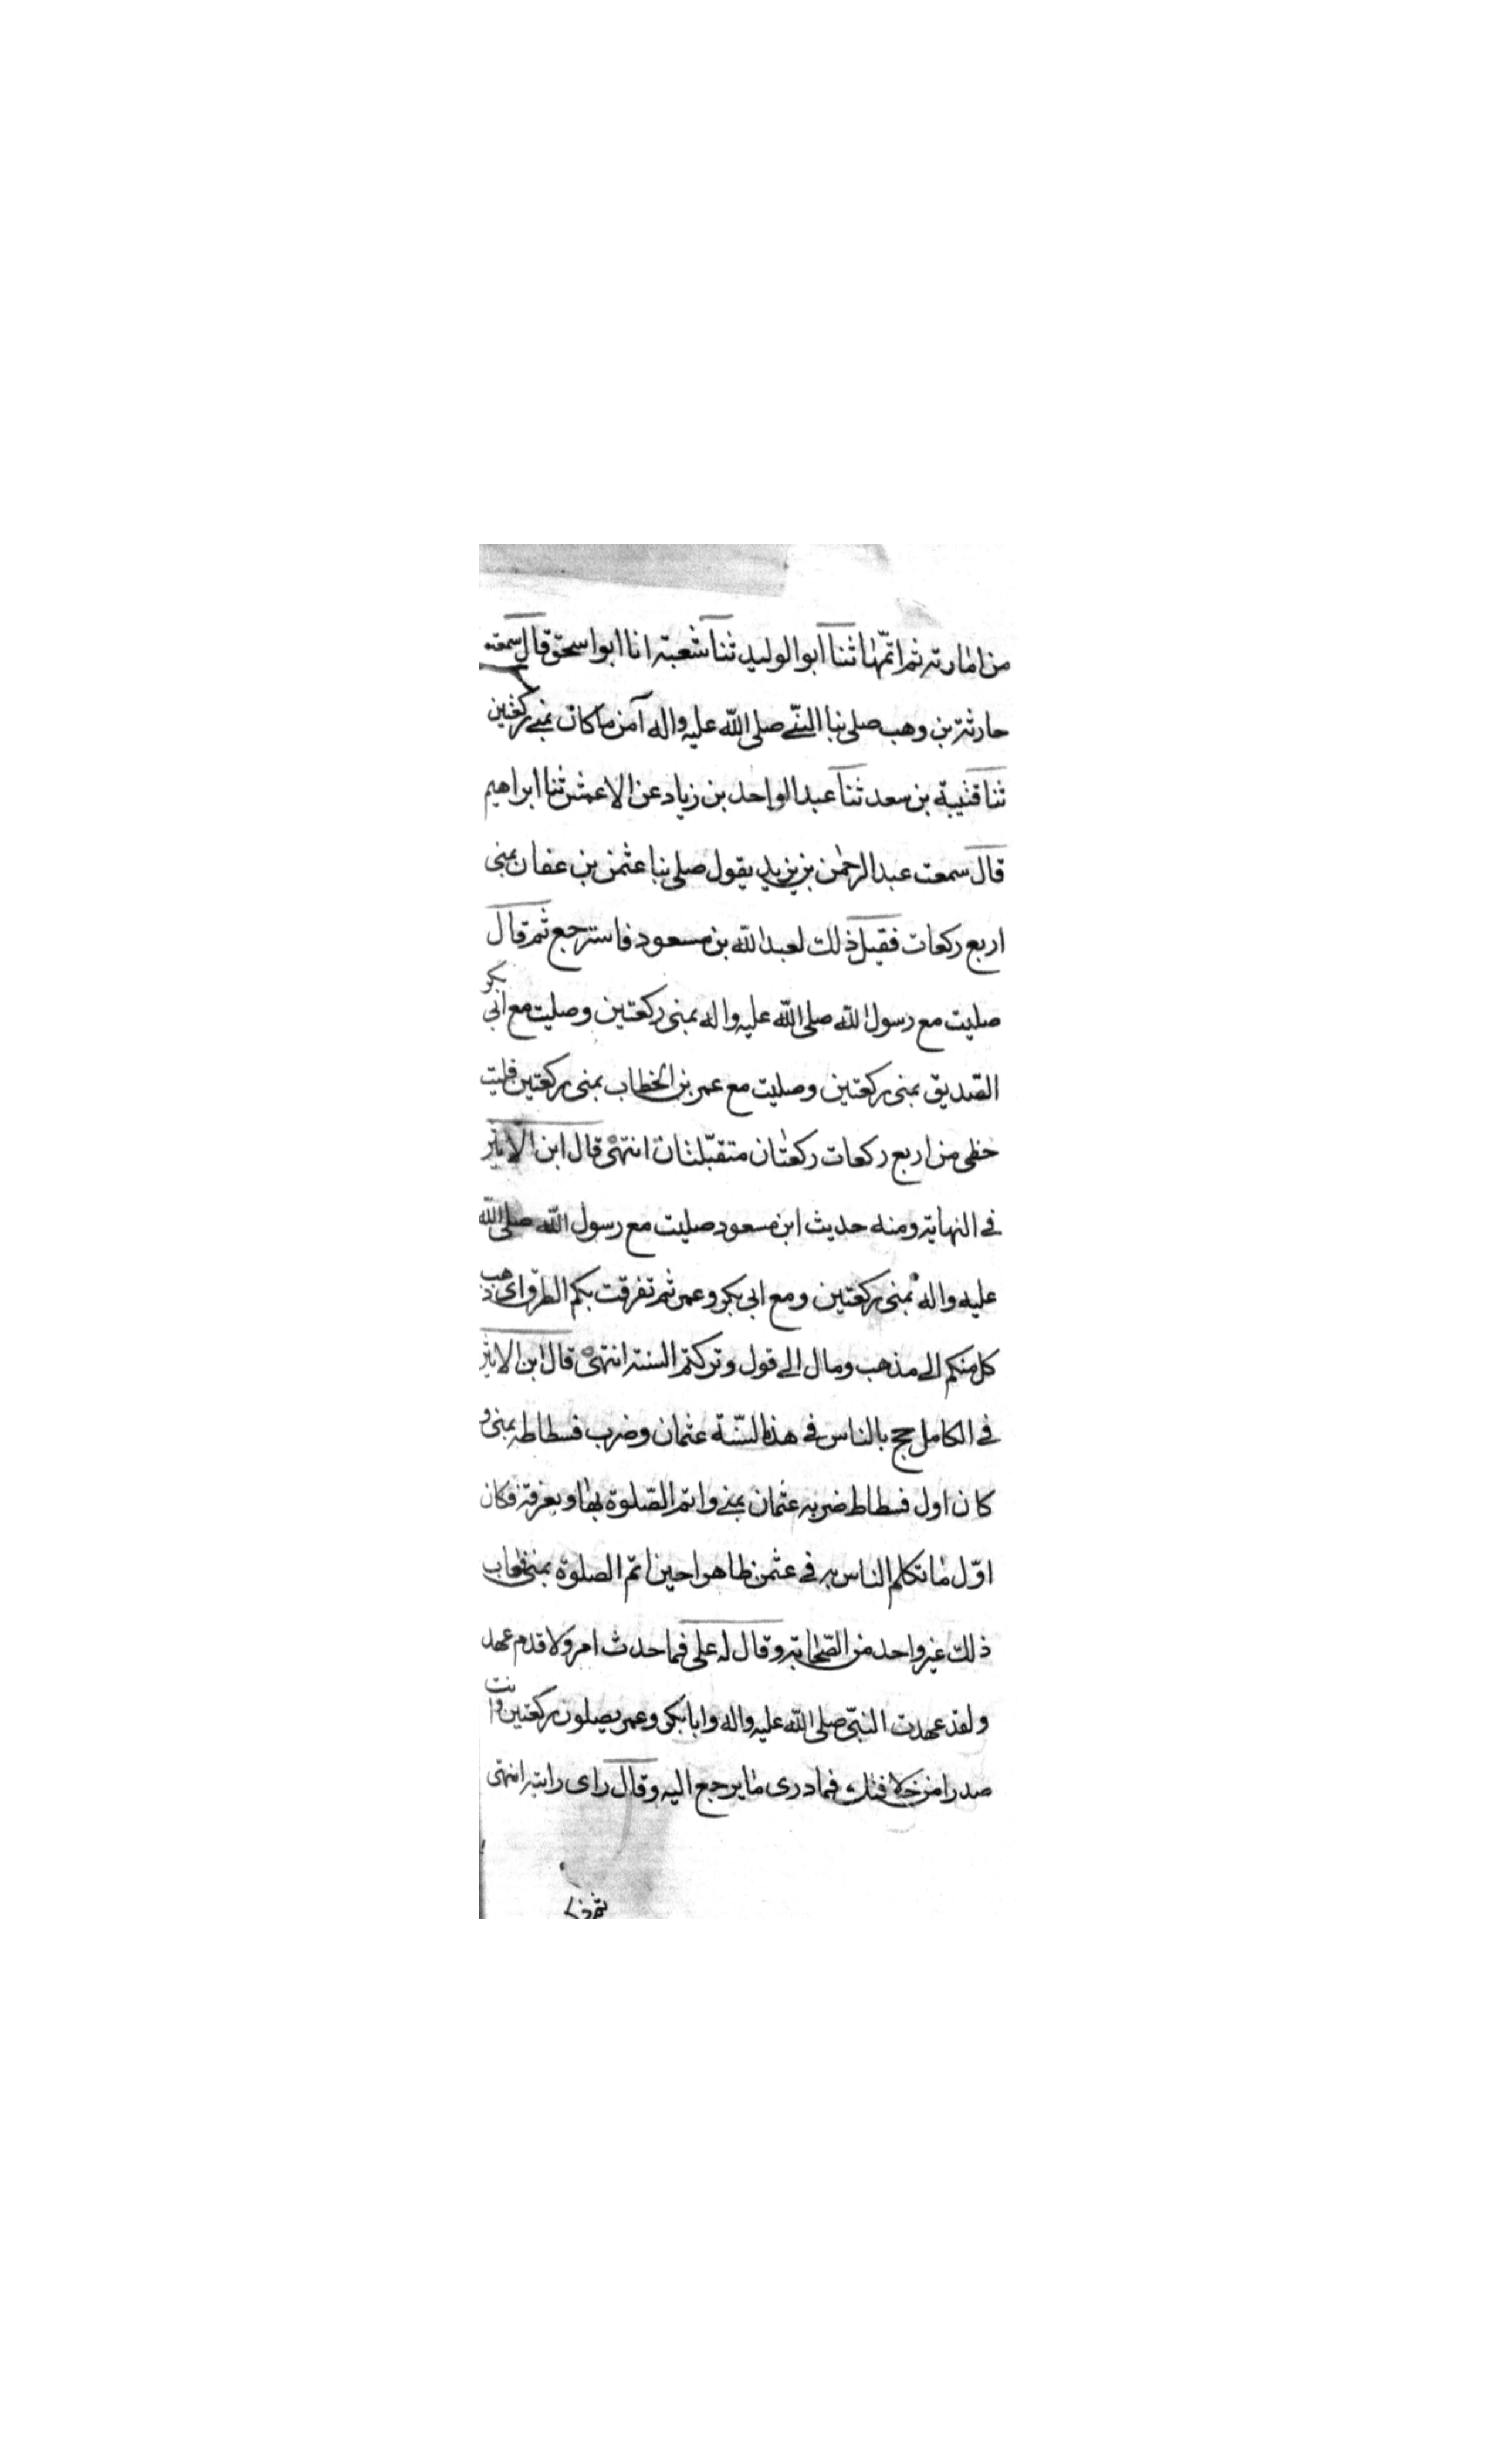 من امارته ثم اتمّها ثنا ابو الوليد ثنا شعبة انا ابو اسحق قال سمعت
حارثة بن وهب صلى بنا النبّي صلى الله عليه واله آمن ما كان بمنى ركعتين
ثنا قتيبة بن سعد ثنا عبد الواحد بن زياد عن الاعمش ثنا ابراهيم
قال سمعت عبد الرحمن بن يزيد يقول صلى بنا عثمن بن عفان بمنى
اربع ركعات فقيل ذلك لعبد الله بن مسعود فاسترجع ثم قال
صليت مع رسول الله صلى الله عليه واله بمنى ركعتين وصليت مع ابي بكر
الصّديق بمنى ركعتين وصليت مع عمر بن الخطاب بمنى ركعتين فليت
حظي من اربع ركعات ركعتان متقبّلتان انتهى قال ابن الاثير
في النهاية ومنه حديث ابن مسعود صليت مع رسول الله صلى الله
عليه واله بمنى ركعتين ومع ابي بكر وعمر ثم تفرقت بكم الطرق اى ذهب
كل منكم الى مذهب ومال الى قول وتركتم السنة انتهى قال ابن الاثير
في الكامل حج بالناس في هذه السّنة عثمان وضرب فسطاطه بمنى و
كان اول فسطاط ضربه عثمان بمنى واتم الصّلوة بها وبعرفة فكان
اوّل ما تكلم الناس به في عثمن ظاهرا حين اتم الصلوة بمنى فعاب
ذلك غير واحد من الصّحابة وقال له علي فما حدث امر ولا قدم عهد
ولقد عهدت النبّي صلى الله عليه واله وابا بكر وعمر يصلون ركعتين وانت
صدرا من خلافتك فما درى ما يرجع اليه وقال راى رايته انتهى